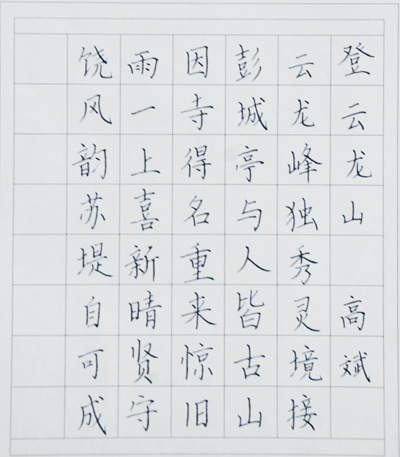 登云龙山 高斌
云龙峰独秀灵境接
彭城亭与人皆古山
因寺得名重来惊旧
雨一上喜新晴贤守
饶风韵苏堤自可成